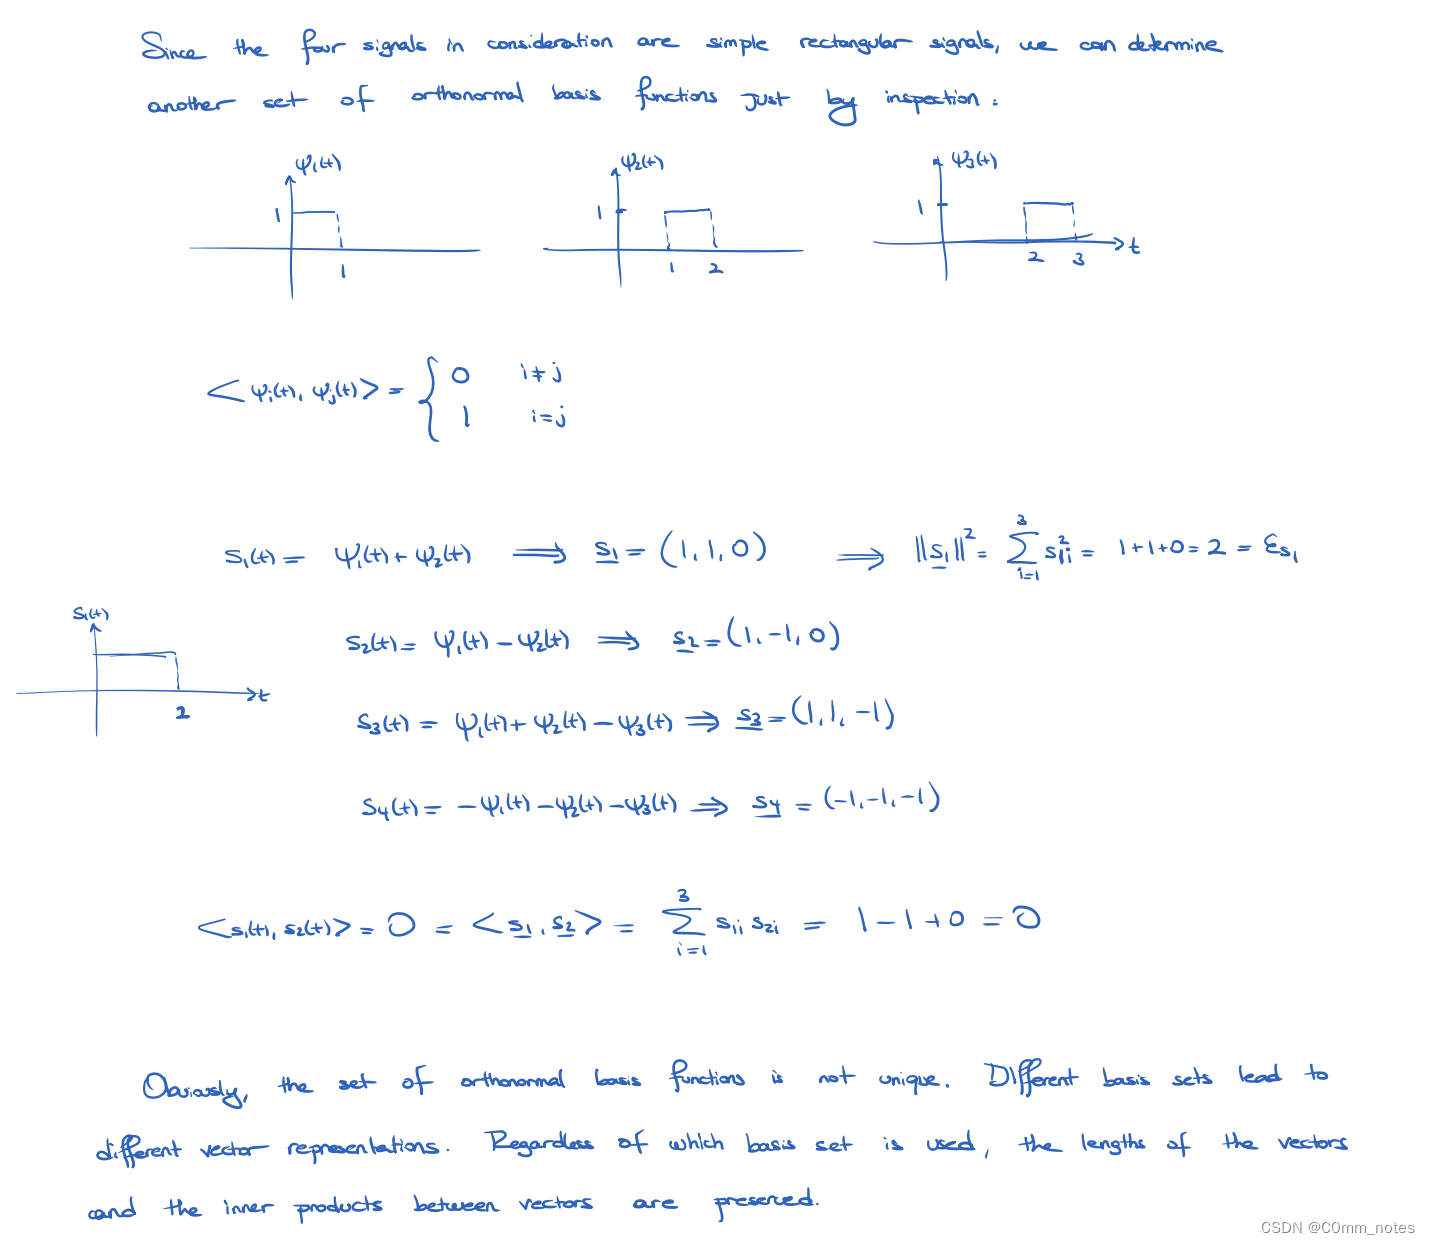 Since the four signals in consideration are simple rectangular signals, we can determine
another set of orthonormal basis functions just by inspection:
ψ₁(t) ψ₂(t) ψ₃(t)
1 1 1
1 1 2 2 3 t
<ψᵢ(t), ψⱼ(t)> = { 0 i≠j
1 i=j
s₁(t) = ψ₁(t) + ψ₂(t) ⟹ s₁ = (1, 1, 0) ⟹ ||s₁||² = Σ_{i=1}^{3} s₁ᵢ² = 1+1+0 = 2 = Ɛs₁
s₁(t)
t
2
s₂(t) = ψ₁(t) − ψ₂(t) ⟹ s₂ = (1, -1, 0)
s₃(t) = ψ₁(t) + ψ₂(t) − ψ₃(t) ⟹ s₃ = (1, 1, -1)
s₄(t) = −ψ₁(t) − ψ₂(t) − ψ₃(t) ⟹ s₄ = (-1, -1, -1)
<s₁(t), s₂(t)> = 0 = <s₁, s₂> = Σ_{i=1}^{3} s₁ᵢ s₂ᵢ = 1 − 1 + 0 = 0
Obviously, the set of orthonormal basis functions is not unique. Different basis sets lead to
different vector representations. Regardless of which basis set is used, the lengths of the vectors
and the inner products between vectors are preserved.
CSDN @C0mm_notes